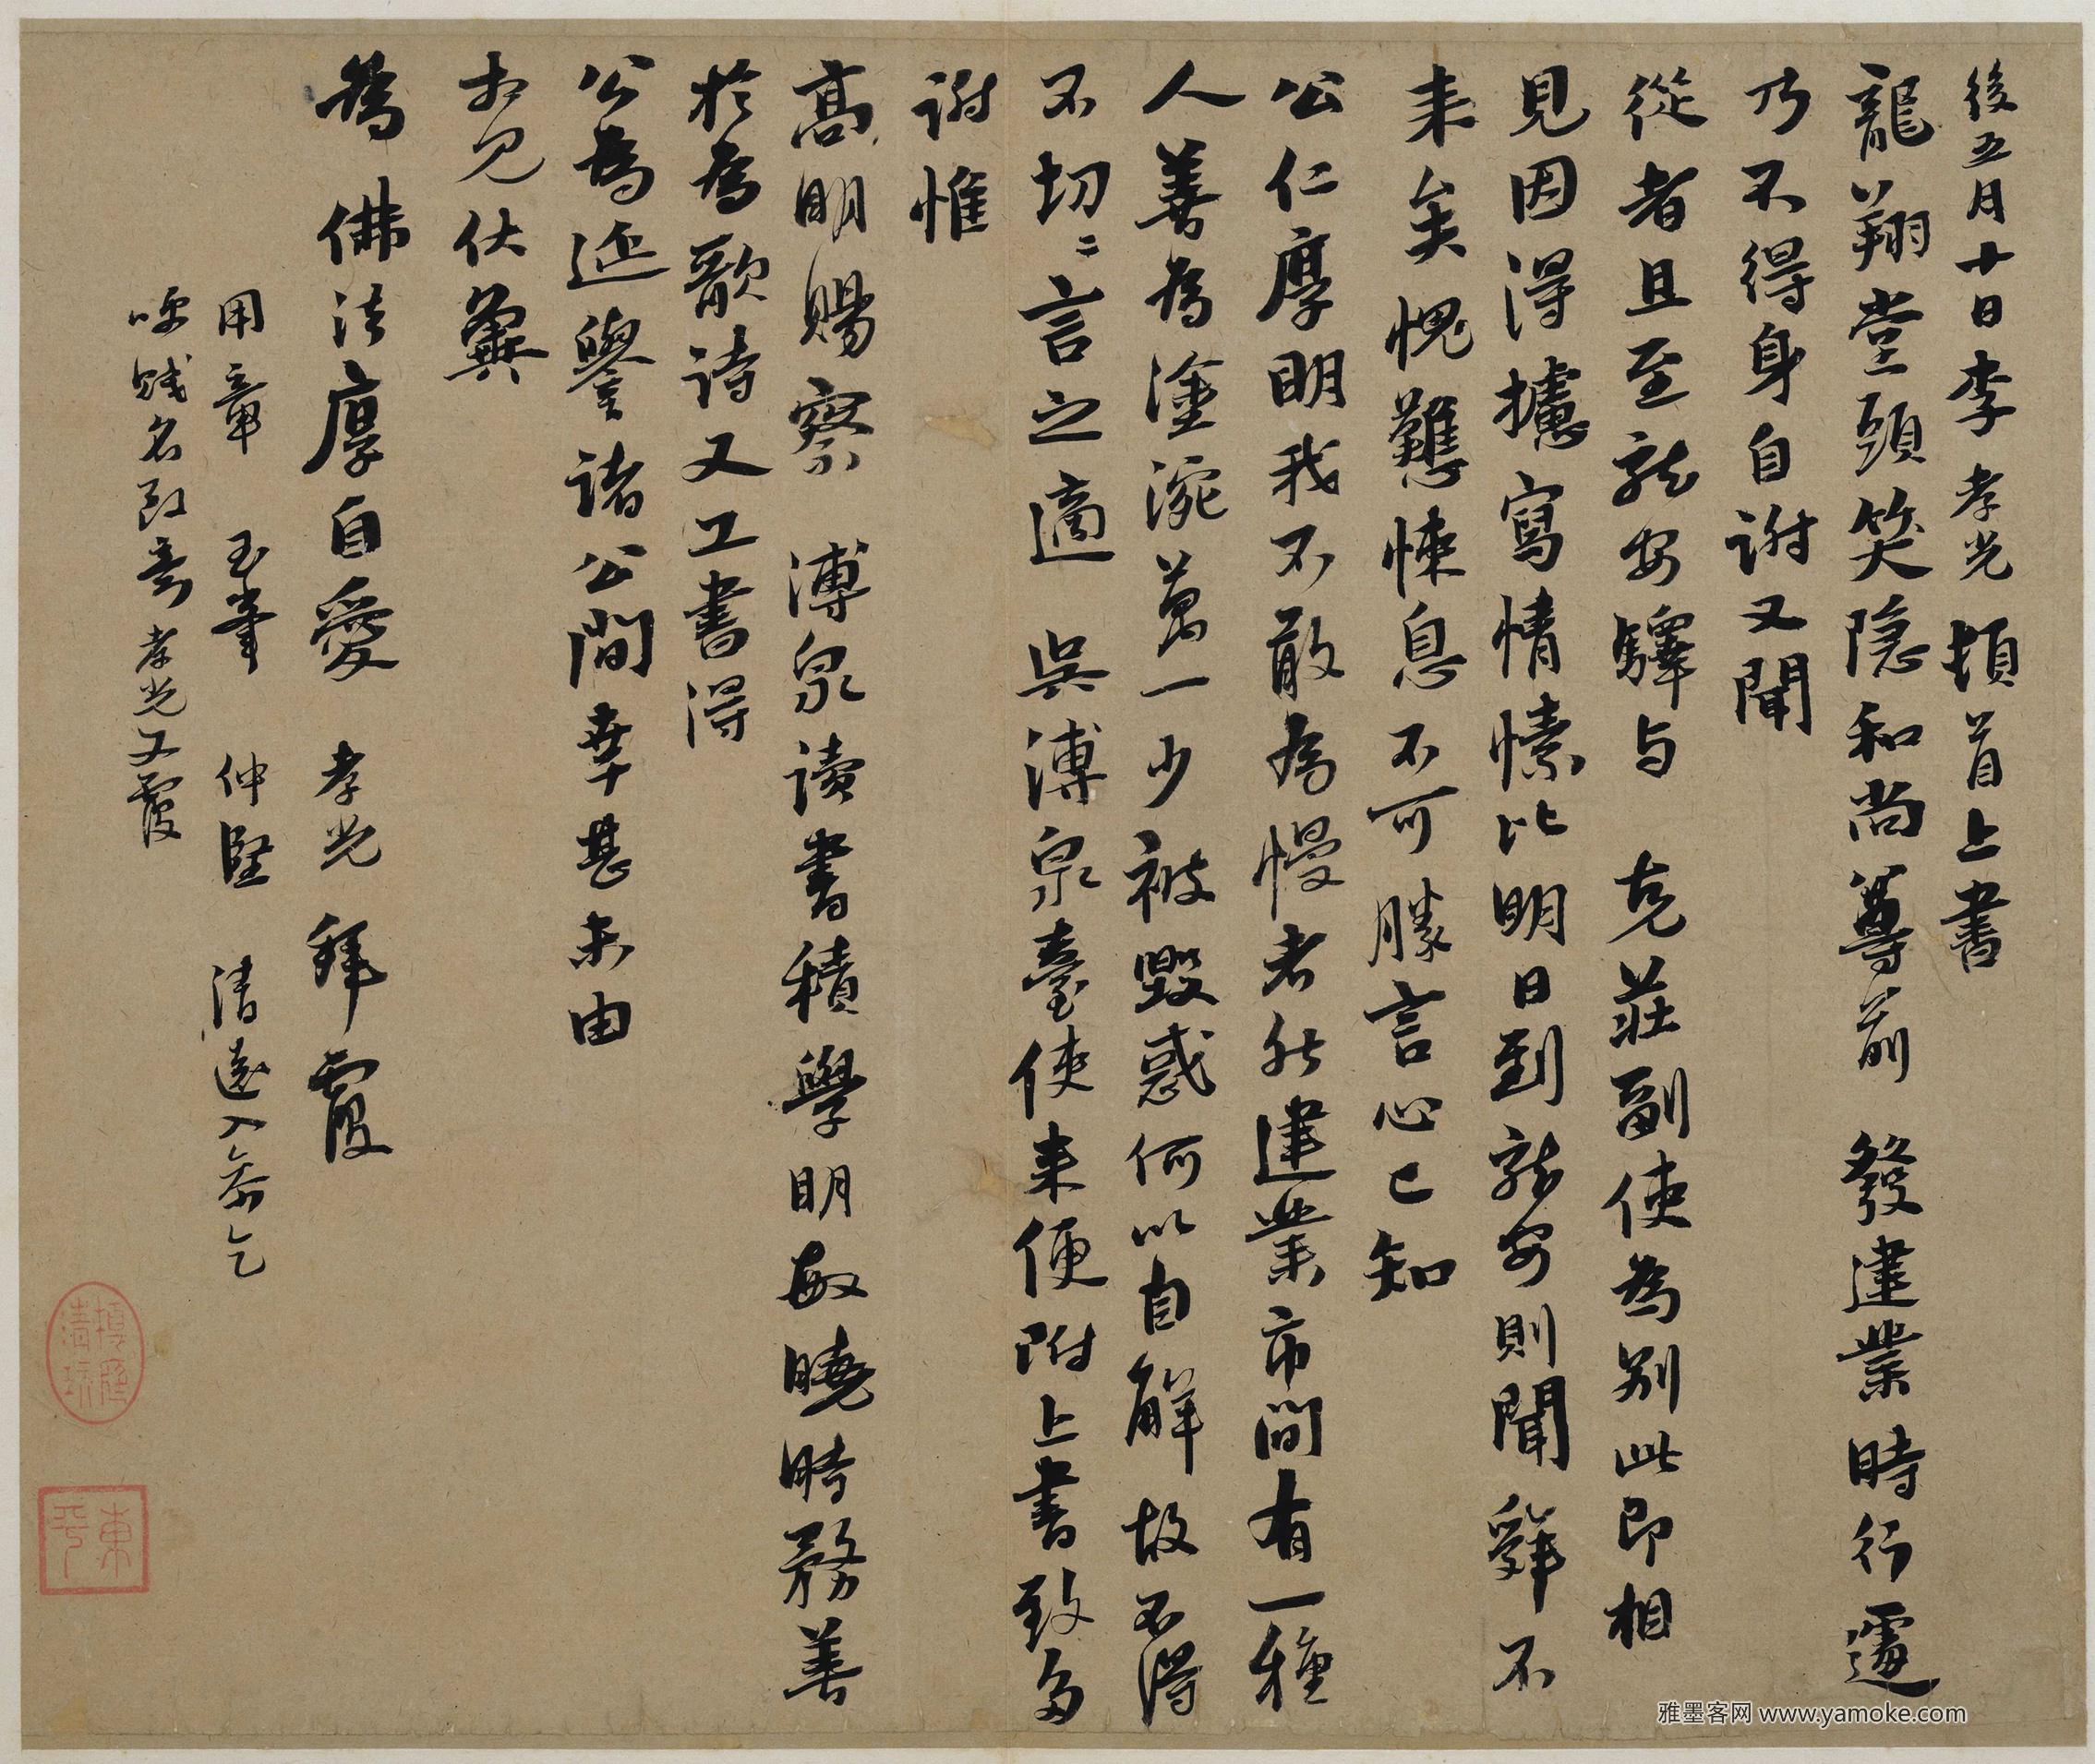 後五月十日李孝光頓首上書
龍翔堂頭笑隐和尚尊前　發建業時行遽
乃不得身自謝又聞
從者且至龍安驛与　克莊副使為别此即相
見因得攄寫情愫比明日到龍安則聞舜不
来矣愧難悚息不可勝言心已知
公仁厚明我不敢為慢者然建業市間有一種
人善為塗涴萬一少被毀惑何以自解故不得
不切二言之適　吳溥泉臺使来便附上書致多
謝惟
高明賜察　溥泉读書積學明敏曉時務善
於為歌诗又工書得
公為延譽諸公間幸甚未由
相见伏冀
為佛法厚自愛　孝光　拜覆
用章　玉峯　仲堅　清遠
賤名致意　孝光又覆
東平
雅墨客网 www.yamoke.com